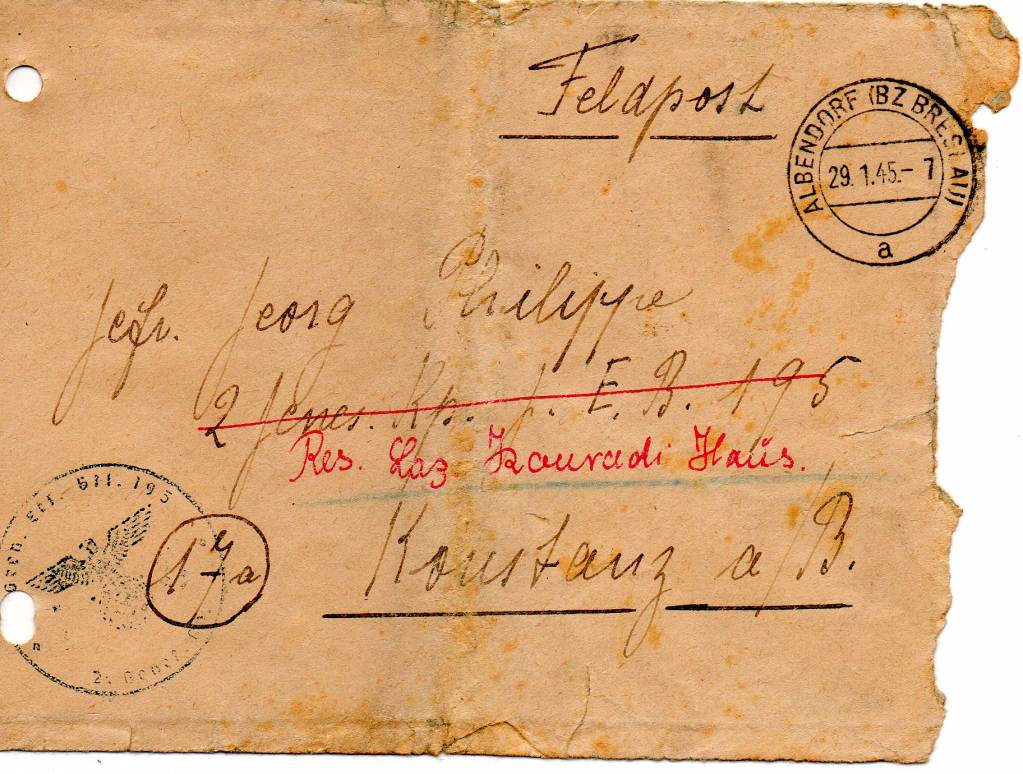 Feldpost
ALBENDORF (BZ BRESLAU)
29.1.45.- 7
a
Gefr. Georg Philippe
2 Genes. Kp. G. E. B. 195
Res. Laz Konradi Haus.
Gren. Ers. Btl. 195
17a
Konstanz a/B.
2. Genes.